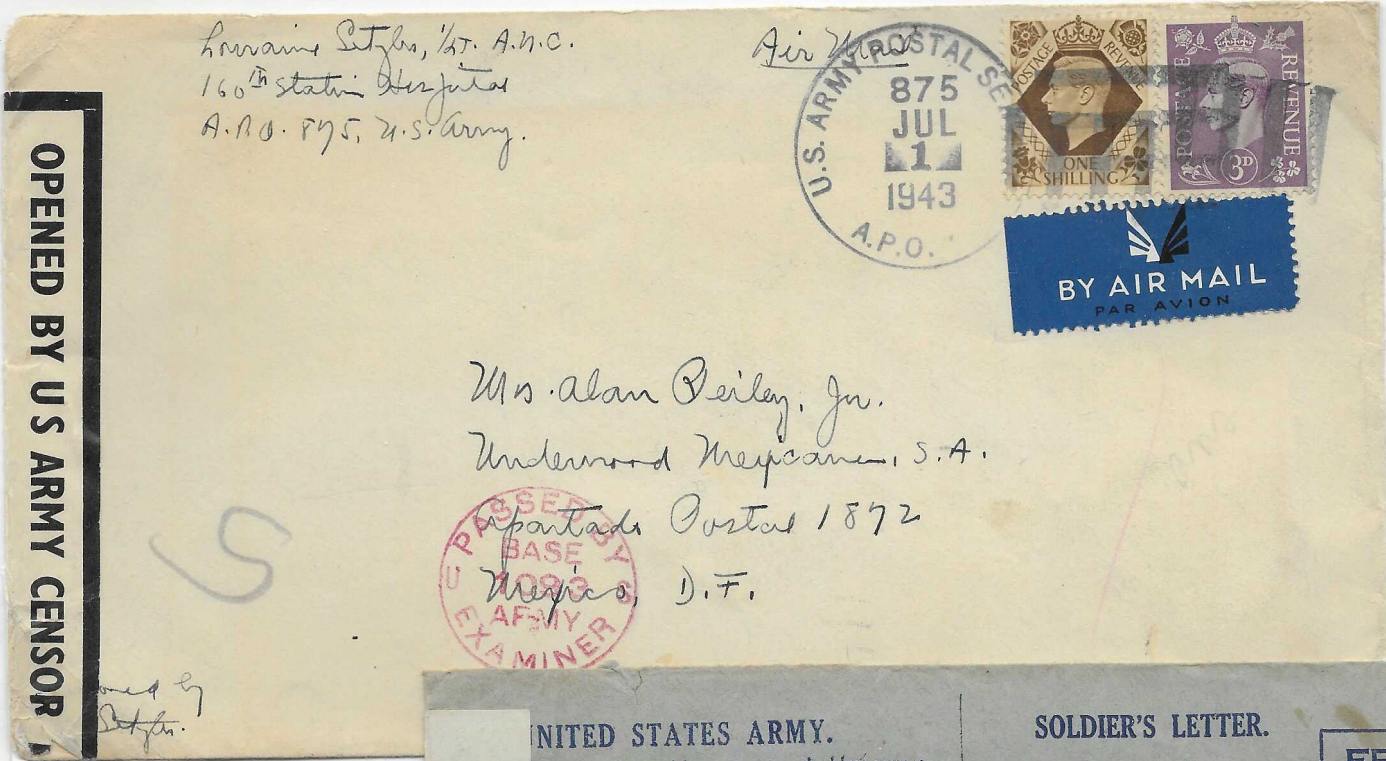 Lorraine Setzler, 1/Lt. A.N.C.
160th Station Hospital
A.P.O. 875, U.S. Army.
Air Mail
U.S. ARMY POSTAL SE
875
JUL
1
1943
A.P.O.
POSTAGE REVENUE
ONE
SHILLING
POSTAGE REVENUE
3D
BY AIR MAIL
PAR AVION
OPENED BY US ARMY CENSOR
Mrs. Alan Peiley, Jr.
Underwood Mexicana, S.A.
Apartado Postal 1872
Mexico, D.F.
PASSED BY
BASE
1083
ARMY
EXAMINER
U S
S
by
NITED STATES ARMY.
SOLDIER'S LETTER.